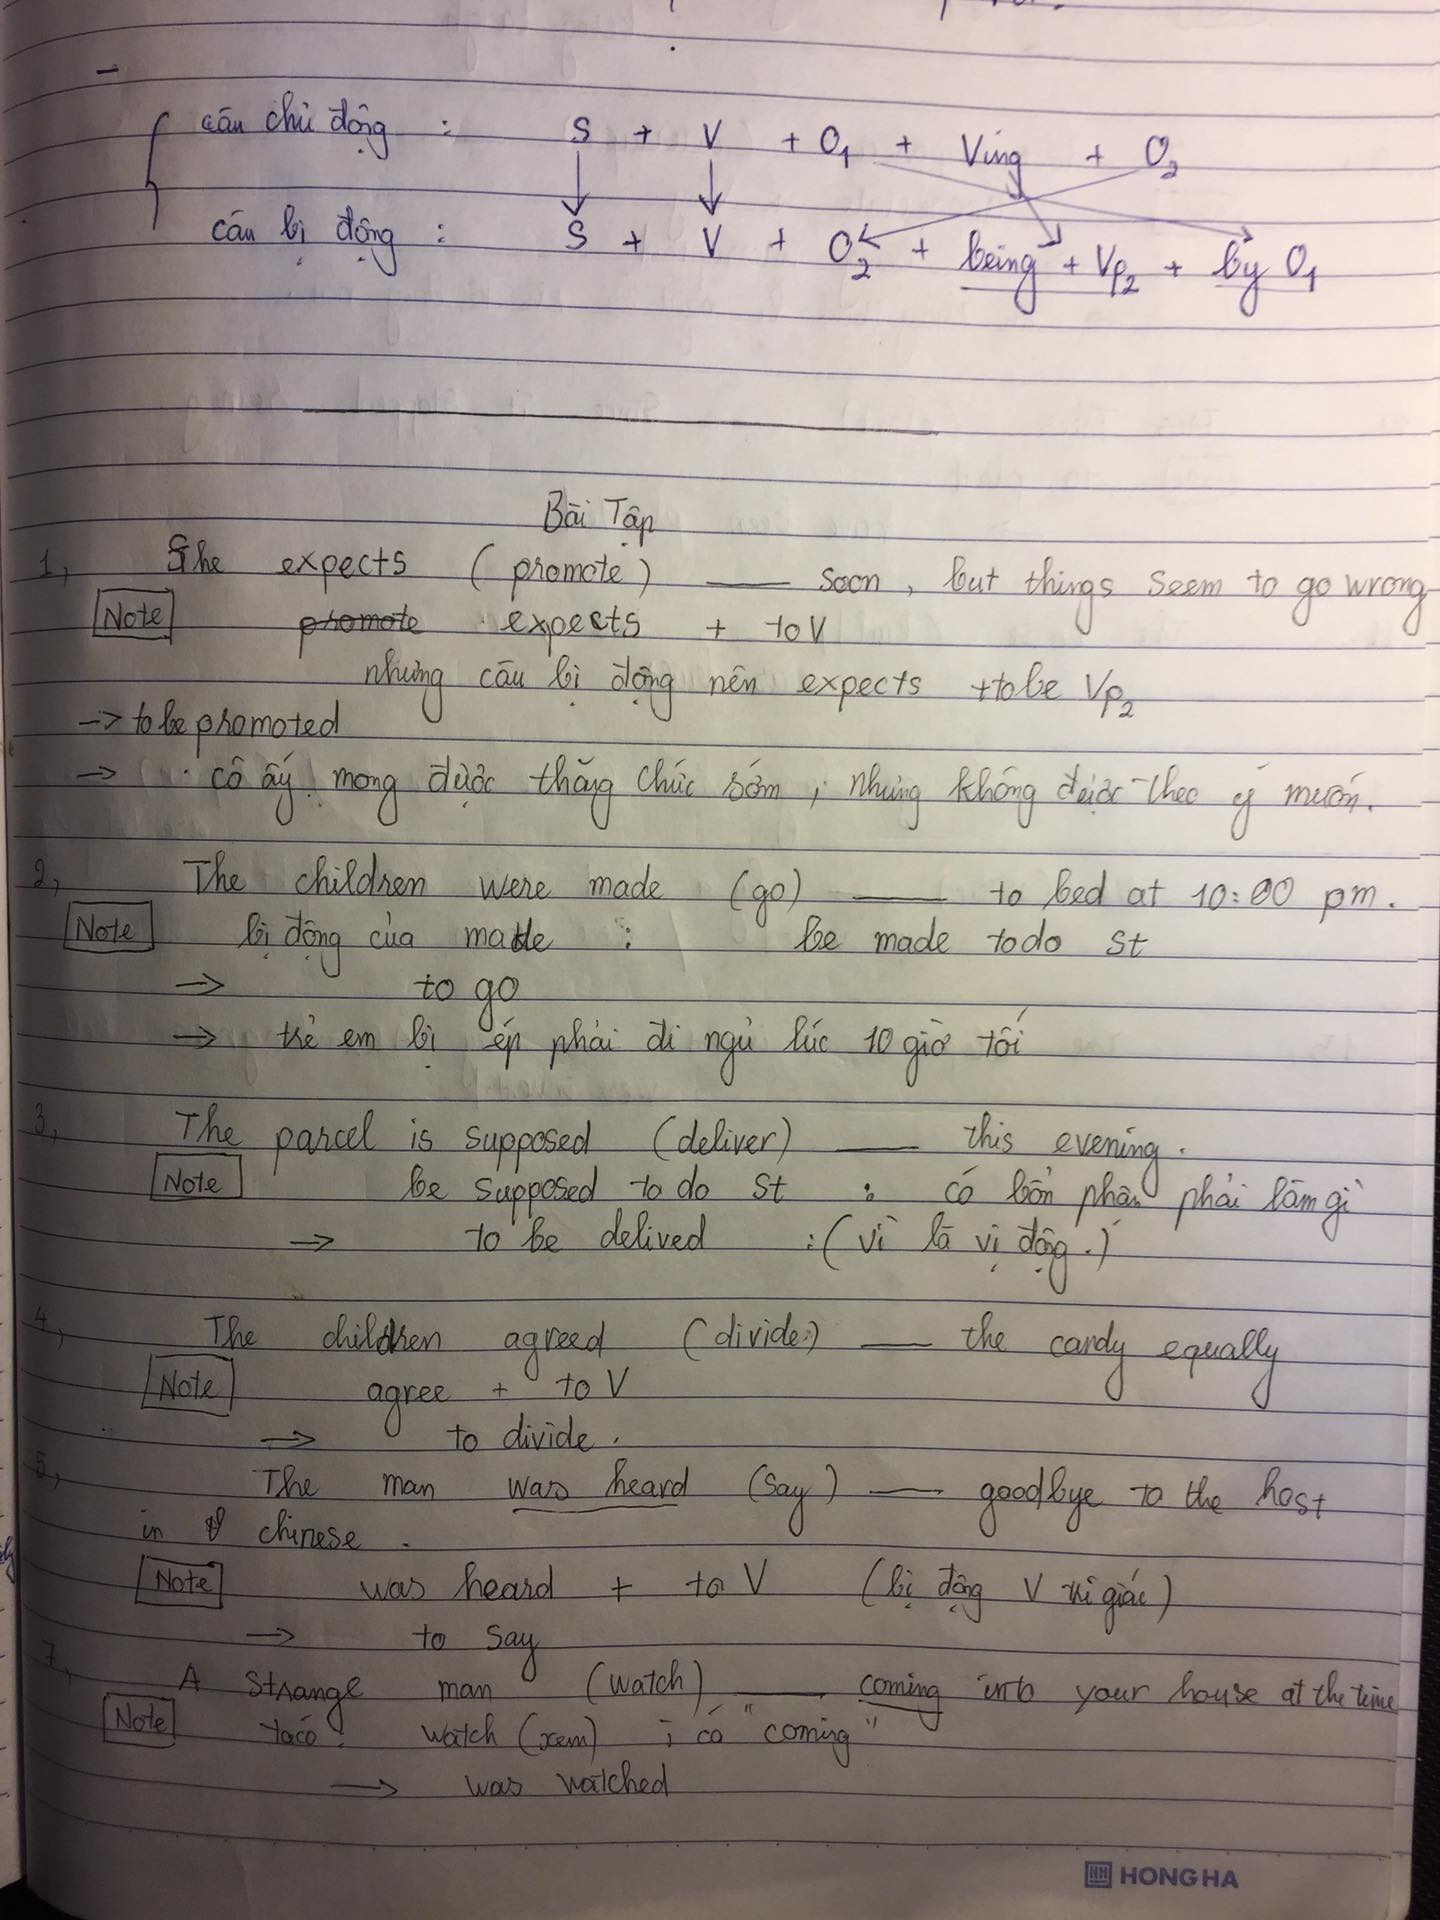 câu chủ động : S + V + O1 + Ving + O2
câu bị động : S + V + O2 + being + Vp2 + by O1
Bài Tập
1, She expects (promote) ___ soon, but things seem to go wrong
Note promote expects + to V
nhưng câu bị động nên expects + to be Vp2
-> to be promoted
-> cô ấy mong được thăng chức sớm, nhưng không được theo ý muốn.
2, The children were made (go) ___ to bed at 10:00 pm.
Note bị động của made : be made to do st
-> to go
-> trẻ em bị ép phải đi ngủ lúc 10 giờ tối
3, The parcel is supposed (deliver) ___ this evening.
Note be supposed to do st : có bổn phận phải làm gì
-> to be delived :( vì là vị động.)
4, The children agreed (divide) ___ the candy equally
Note agree + to V
-> to divide.
5, The man was heard (say) ___ goodbye to the host
in chinese.
Note was heard + to V (bị động V tri giác)
-> to say
7, A strange man (watch) ___ coming into your house at the time
Note ta có : watch (xem) ; có "coming"
-> was watched
HONG HA